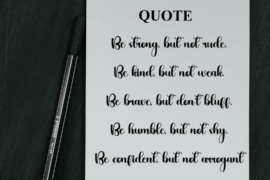 QUOTE
Be strong, but not rude.
Be kind, but not weak.
Be brave, but don't bluff.
Be humble, but not shy.
Be confident, but not arrogant